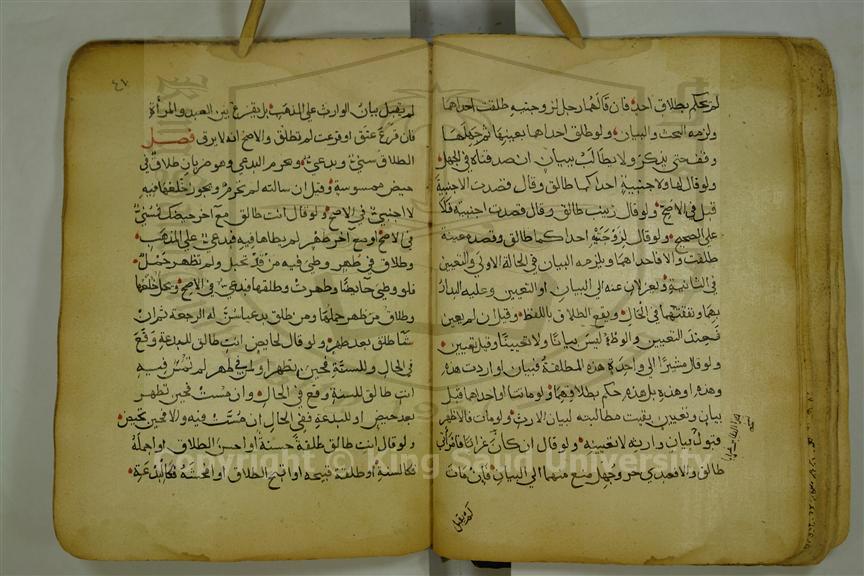 لم يحكم بطلاق احد فان قالهما رجل لزوجتيه طلقت احداهما
ولزمه البحث والبيان ولو طلق احداهما بعينها ثم جهلها
وقف حتى يذكر ولا يطالب ببيان ان صدقتاه في الجهل
ولو قال لها ولاجنبية احداكما طالق وقال قصدت الاجنبية
قبل في الاصح ولو قال زينب طالق وقال قصدت اجنبية فلا
على الصحيح ولو قال لزوجتيه احداكما طالق وقصد معينة
طلقت والا فاحداهما ويلزمه البيان في الحالة الاولى والتعيين
في الثانية وتعزلان عنه الى البيان او التعيين وعليه البدار
بهما ونفقتهما في الحال ويقع الطلاق باللفظ وقيل ان لم يعين
فعند التعيين والوطء ليس بيانا ولا تعيينا وقيل تعيين
ولو قال مشيرا الى واحدة هذه المطلقة فبيان او اردت هذه
وهذه او هذه بل هذه حكم بطلاقهما ولو ماتتا او احداهما قبل
بيان وتعيين بقيت مطالبته لبيان الارث ولو مات فالاظهر
قبول بيان وارثه لا تعيينه ولو قال ان كان غرابا فامرأتي
طالق والا فعبدي حر وجهل منع منهما الى البيان فان مات
لم يقبل
٤١
لم يقبل بيان الوارث على المذهب بل يقرع بين العبد والمرأة
فان قرع عتق او قرعت لم تطلق والاصح انه لا يرق فصل
الطلاق سني وبدعي ويحرم البدعي وهو ضربان طلاق في
حيض ممسوسة وقيل ان سالته لم يحرم ويجوز خلعها فيه
لا اجنبي في الاصح ولو قال انت طالق مع آخر حيضك فسني
في الاصح او مع آخر طهر لم يطاها فيه فبدعي على المذهب
وطلاق في طهر وطئ فيه من قد تحبل ولم تظهر حمل
فلو وطئ حائضا وطهرت وطلقها فبدعي في الاصح ويحل خلعها
وطلاق من ظهر حملها ومن طلق بدعيا سن له الرجعة ثم ان
شا طلق بعد طهر ولو قال لحايض انت طالق للبدعة وقع
في الحال وللسنة فحين تطهر او لمن في طهر لم تمس فيه
انت طالق للسنة وقع في الحال وان مست فحين تطهر
بعد حيض او للبدعة ففي الحال ان مست فيه والا فحين تحيض
ولو قال انت طالق طلقة حسنة او احسن الطلاق او اجمله
فكالسنة او طلقة قبيحة او اقبح الطلاق او افحشه فكالبدعة
Copyright © King Saud University